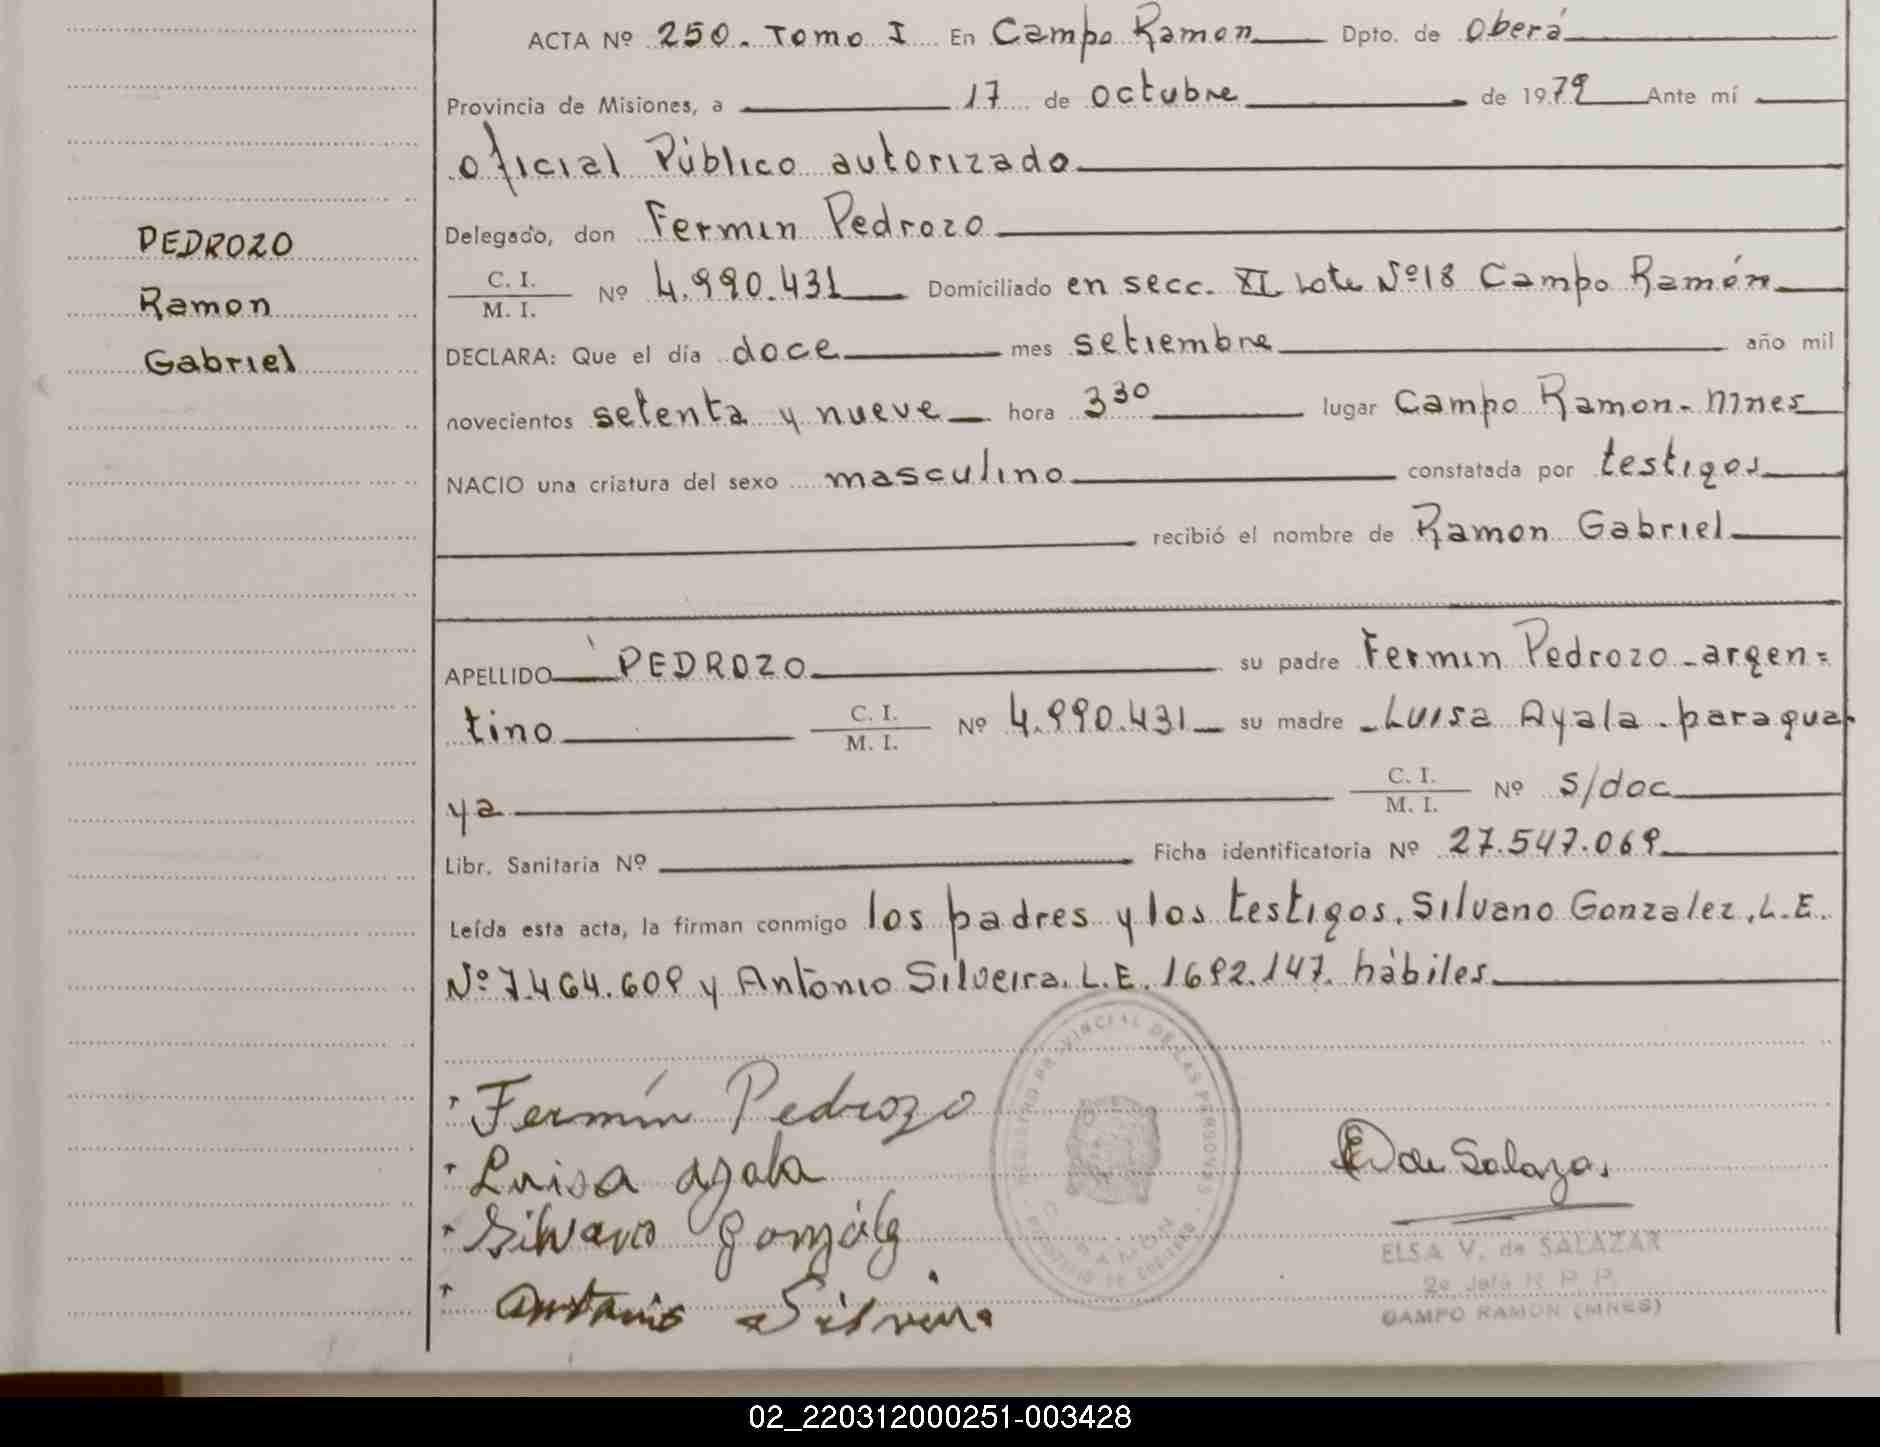 ACTA Nº 250. Tomo I En Campo Ramon Dpto. de Oberá
Provincia de Misiones, a 17 de octubre de 1979 Ante mí
oficial Público autorizado
Delegado, don Fermin Pedrozo
PEDROZO
Ramon
Gabriel
C. I.
M. I. Nº 4.990.431 Domiciliado en secc. XI Lote Nº18 Campo Ramón
DECLARA: Que el día doce mes setiembre año mil
novecientos setenta y nueve hora 3³⁰ lugar Campo Ramon - Mnes
NACIO una criatura del sexo masculino constatada por testigos
recibió el nombre de Ramon Gabriel
APELLIDO PEDROZO su padre Fermin Pedrozo - argen=
tino C. I.
M. I. Nº 4.990.431 su madre - Luisa Ayala - paragua
ya C. I.
M. I. Nº S/doc
Libr. Sanitaria Nº Ficha identificatoria Nº 27.547.069
Leída esta acta, la firman conmigo los padres y los testigos. Silvano Gonzalez, L.E.
Nº 7.464.609 y António Silveira. L.E. 1692.147. hábiles
Fermín Pedrozo
Luisa ayala
Silvano González
Antonio Silveira
REGISTRO PROVINCIAL DE LAS PERSONAS
C. RAMON
E V de Salazar
ELSA V. de SALAZAR
2o Jefe R P P.
CAMPO RAMON (MNES)
02_220312000251-003428